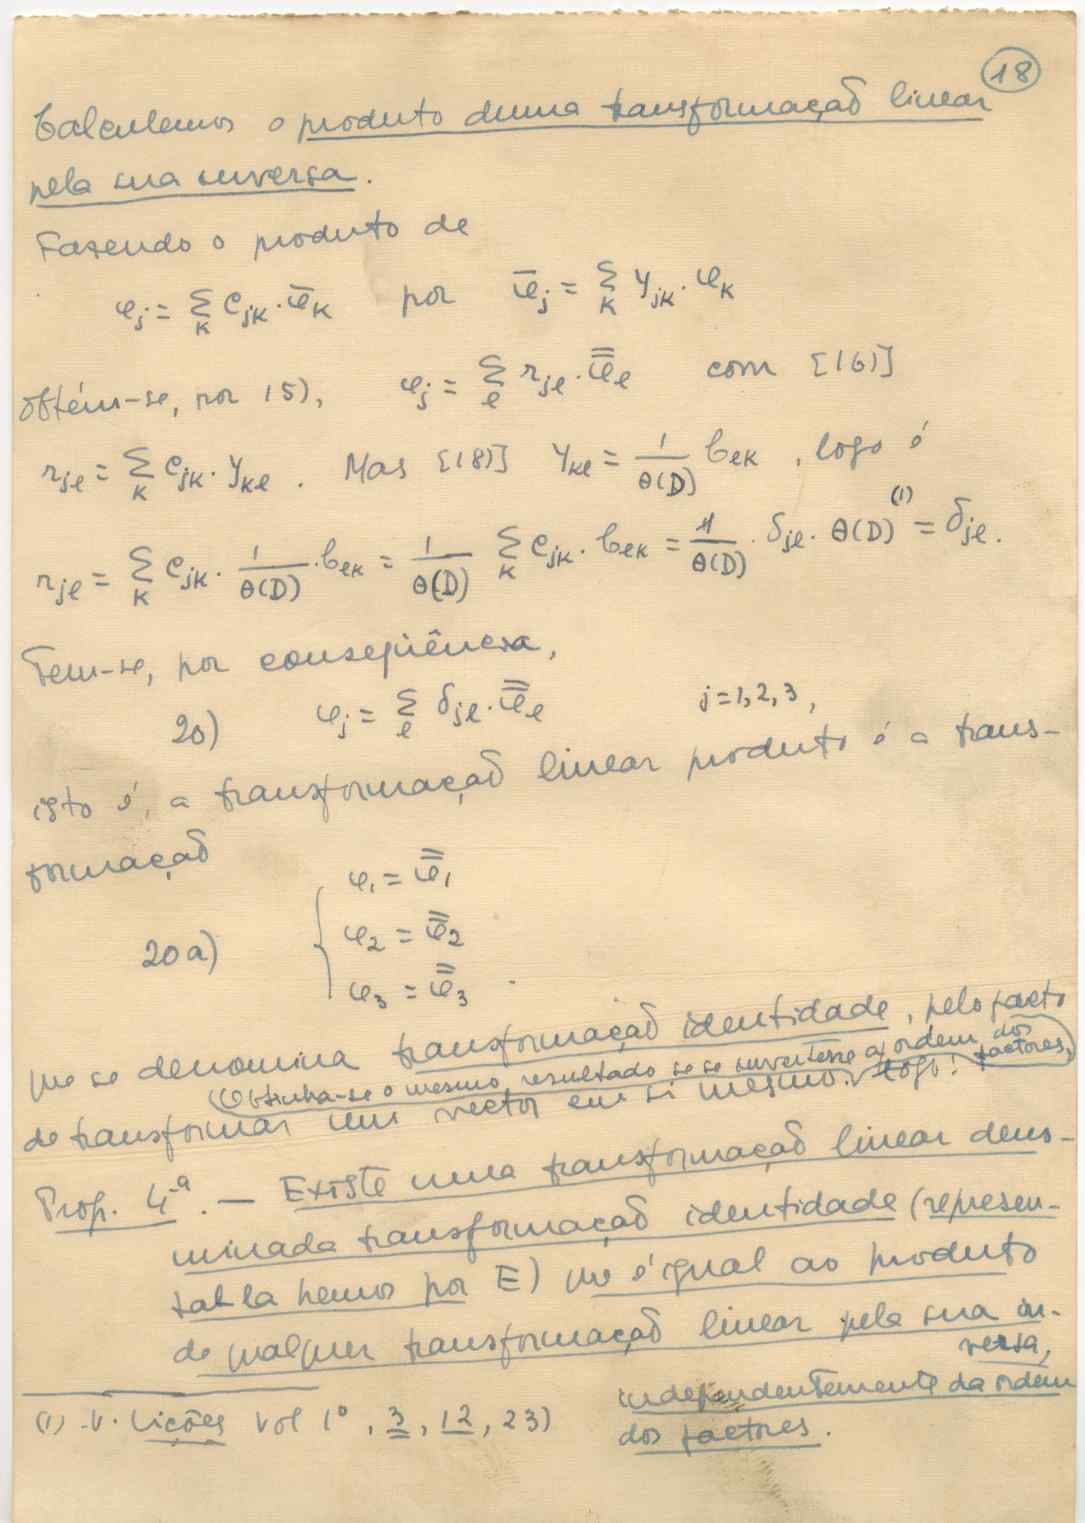 18
Calculemos o produto duma transformação linear
pela sua inversa.
Fazendo o produto de
φj = Σ_k c_jk · φ̄_k por φ̄_j = Σ_k γ_jk · φ_k
obtém-se, por 15), φ_j = Σ_l r_jl · φ̿_l com [16)]
r_jl = Σ_k c_jk · γ_kl . Mas [18)] γ_kl = 1/θ(D) b_lk , logo é
r_jl = Σ_k c_jk · 1/θ(D) · b_lk = 1/θ(D) Σ_k c_jk · b_lk = 1/θ(D) · δ_jl · θ(D) (1) = δ_jl .
Tem-se, por conseqüência,
20) φ_j = Σ_l δ_jl · φ̿_l j = 1, 2, 3 ,
isto é, a transformação linear produto é a trans-
formação
φ1 = φ̿1
20a) φ2 = φ̿2
φ3 = φ̿3 .
que se denomina transformação identidade, pelo facto
(Obtinha-se o mesmo resultado se se invertesse a ordem dos factores)
de transformar um vector em si mesmo. Logo:
Prop. 4ª. — Existe uma transformação linear deno-
minada transformação identidade (represen-
tal-la hemos por E) que é igual ao produto
de qualquer transformação linear pela sua in-
versa,
independentemente da ordem
dos factores.
(1) V. Lições vol 1º, 3, 12, 23)